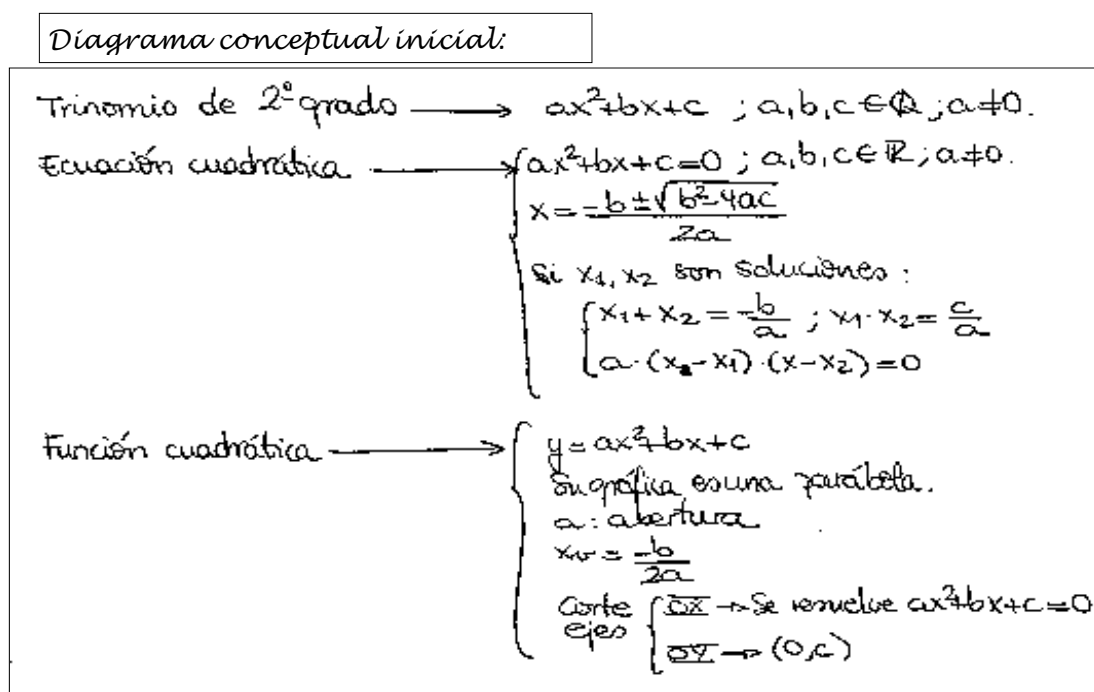 Diagrama conceptual inicial:
Trinomio de 2º grado → ax²+bx+c ; a,b,c ∈ ℚ ; a≠0.
Ecuación cuadrática → { ax²+bx+c=0 ; a,b,c ∈ ℝ ; a≠0.
x = (-b ± √(b²-4ac)) / 2a
Si x₁, x₂ son soluciones :
{ x₁+x₂ = -b/a ; x₁·x₂ = c/a
a·(x-x₁)·(x-x₂)=0
Función cuadrática → { y=ax²+bx+c
Su gráfica es una parábola.
a: abertura
xᵥ = -b/2a
Corte ejes { OX → Se resuelve ax²+bx+c=0
OY → (0,c)